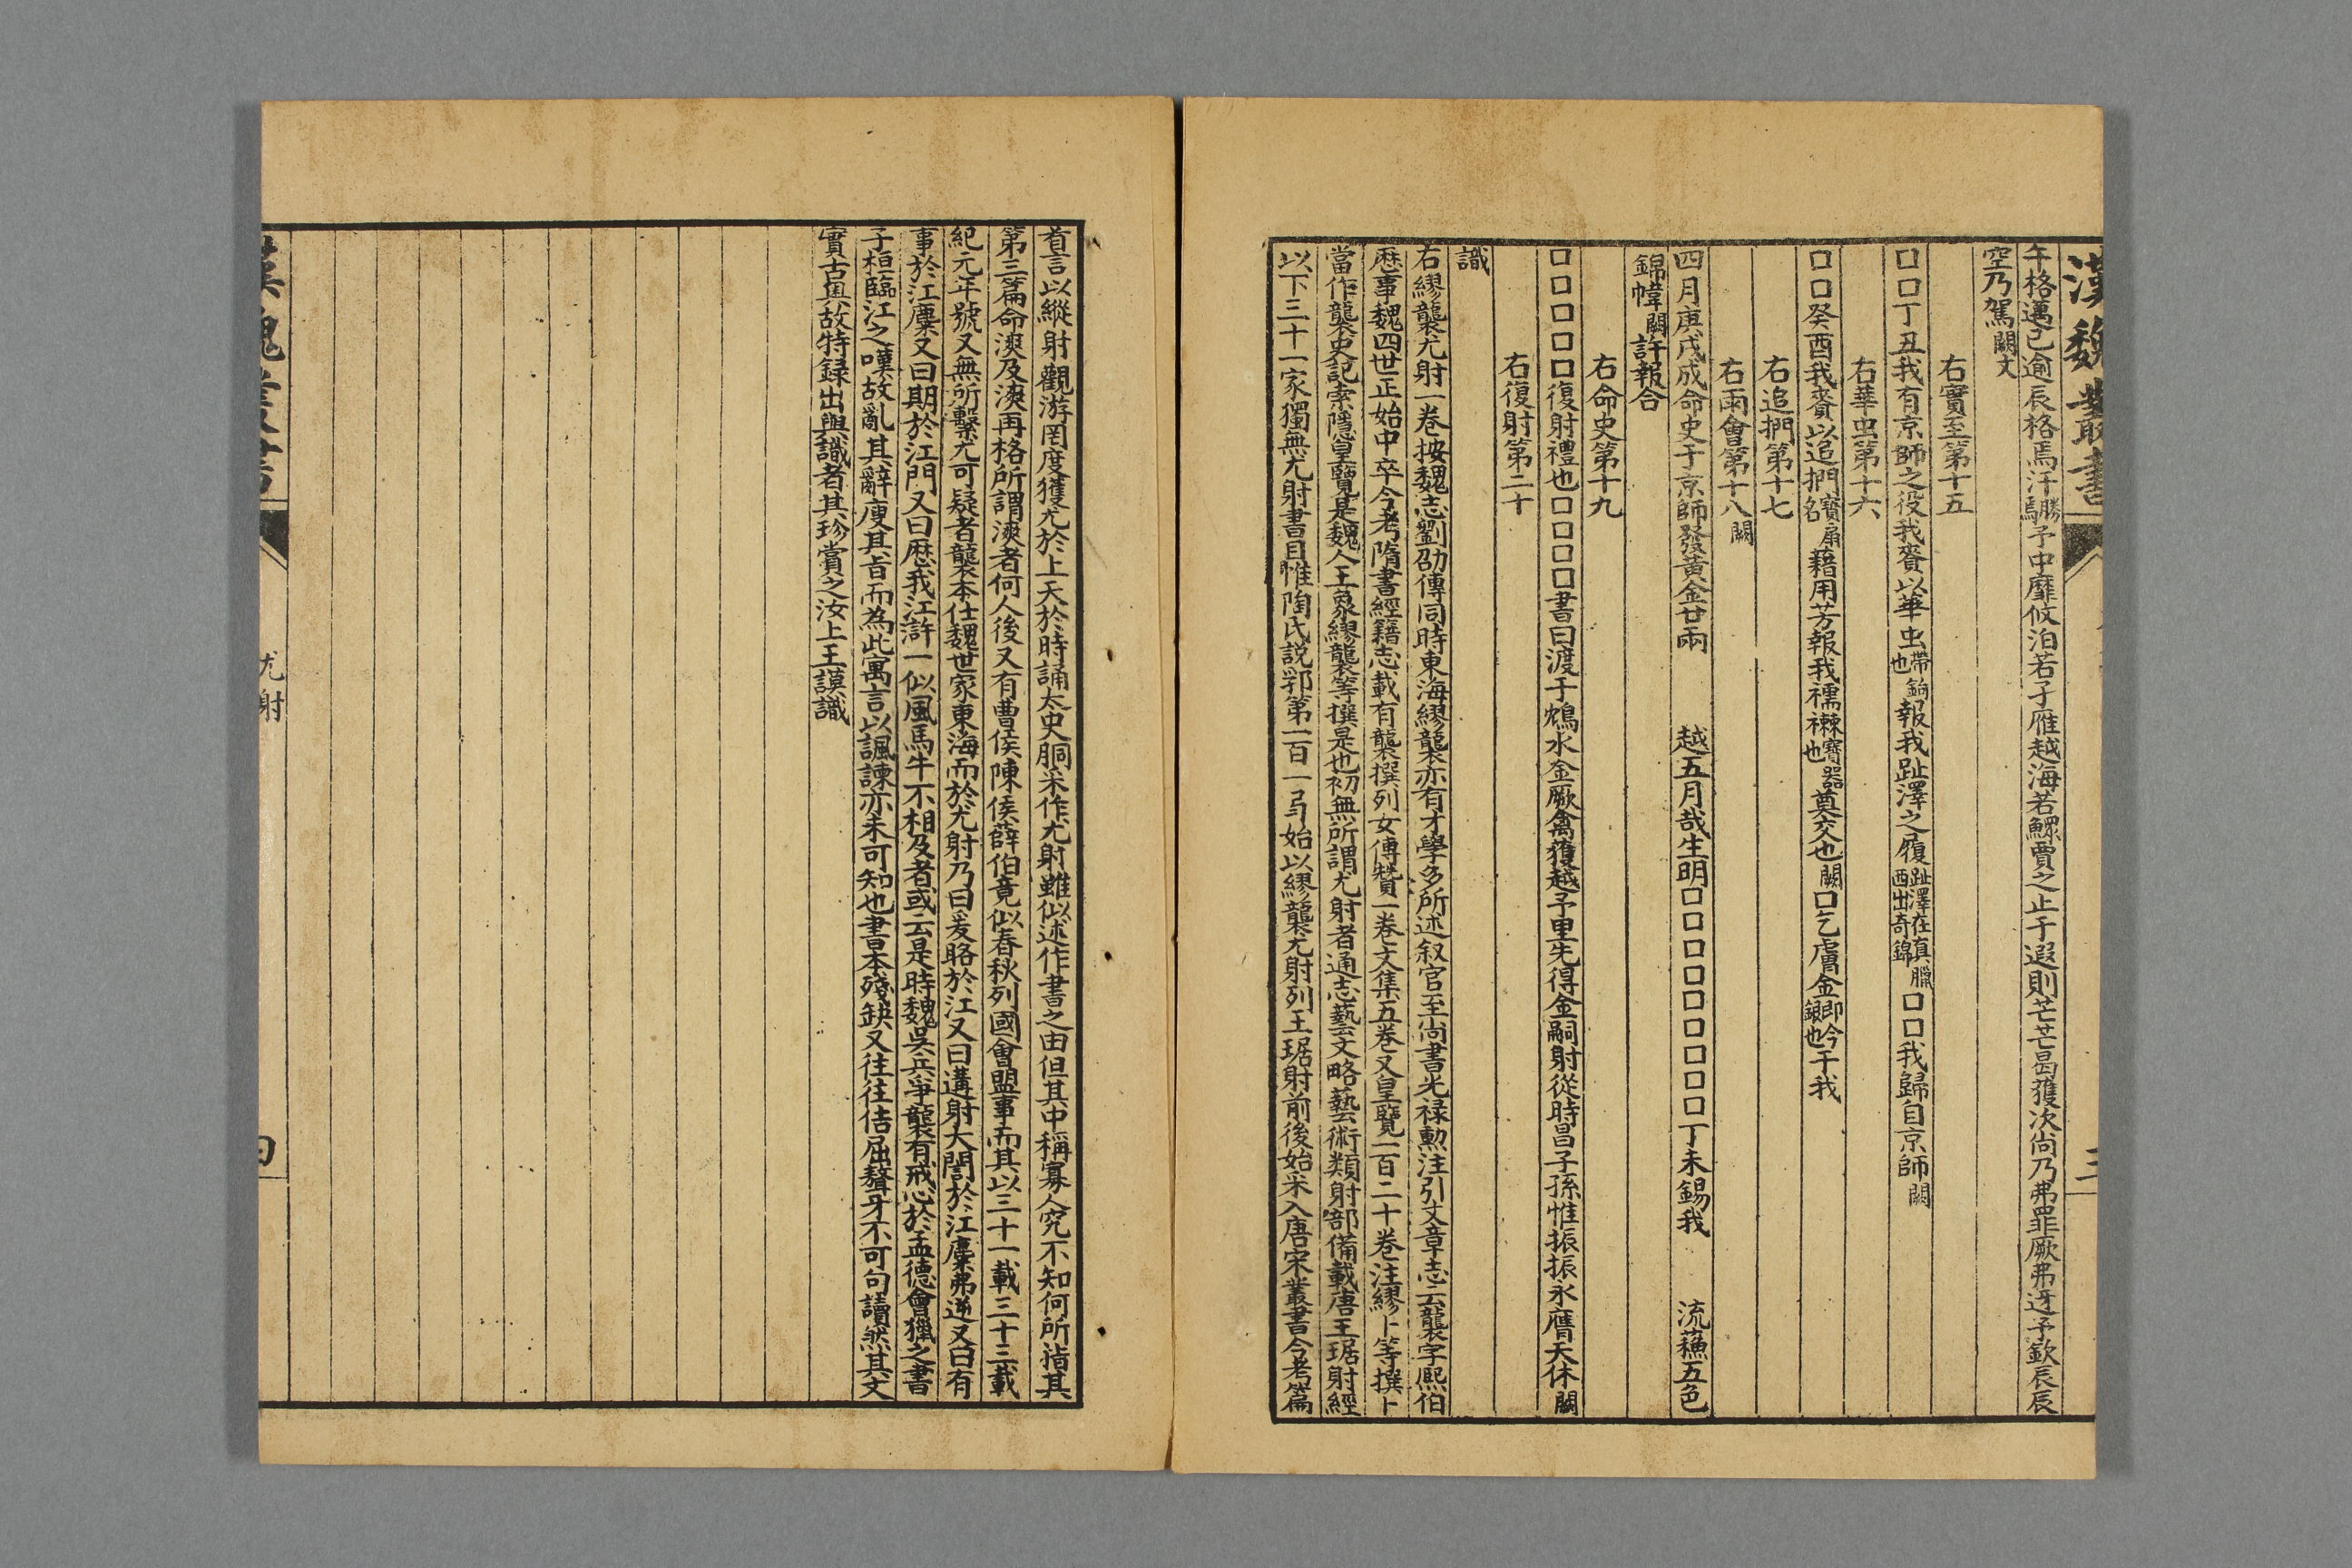 漢魏叢書
三
午格邁已逾辰格焉汗勝焉予中靡攸泊若子雁越海若鰥賈之止于遐則芒芒曷獲次尚乃弗罪厥弗迓予欽辰辰
空乃駕闕文
右實至第十五
口口丁丑我有京師之役我賚以華虫帶鉤也報我趾澤之履趾澤在真臘西出奇錦口口我歸自京師闕
右華虫第十六
口口癸酉我賚以追捫寶扇名藉用芳報我襦襋寶器也奠交也闕口乞膚金即今銀也于我
右追捫第十七
右雨會第十八闕
四月庚戌成命史于京師發黃金廿兩 越五月哉生明口口口口口口口口口丁未錫我 流蘓五色
錦幃闕許報合
右命史第十九
口口口口口復射禮也口口口口書曰渡于鴆水金厥禽獲越予里先得金嗣射從時昌子孫惟振振永膺天休闕
右復射第二十
識
右繆襲尤射一卷按魏志劉劭傳同時東海繆襲亦有才學多所述叙官至尚書光祿勲注引文章志云襲字熈伯
歴事魏四世正始中卒今考隋書經籍志載有襲撰列女傳贊一卷文集五卷又皇覽一百二十卷注繆卜等撰卜
當作襲史記索隱皇覽是魏人王象繆襲等撰是也初無所謂尤射者通志藝文略藝術類射部備載唐王琚射經
以下三十一家獨無尤射書目惟陶氏説郛第一百一弓始以繆襲尤射列王琚射前後始采入唐宋叢書今考篇
首言以縱射觀游罔度獲尤於上天於時誦太史胴采作尤射雖似述作書之由但其中稱寡人究不知何所指其
第三篇命渜及渜再格所謂渜者何人後又有曹侯陳侯薛伯竟似春秋列國會盟事而其以三十一載三十三載
紀元年號又無所繫尤可疑者襲本仕魏世家東海而於尤射乃曰爰賂於江又曰遘射大誾於江麋弗逆又曰有
事於江麋又曰期於江門又曰歴我江滸一似風馬牛不相及者或云是時魏吳兵爭襲有戒心於孟德會獵之書
子桓臨江之嘆故亂其辭廋其旨而為此寓言以諷諫亦未可知也書本殘缺又往往佶屈聱牙不可句讀然其文
實古奥故特録出與識者其珍賞之汝上王謨識
漢魏叢書
尤射
四